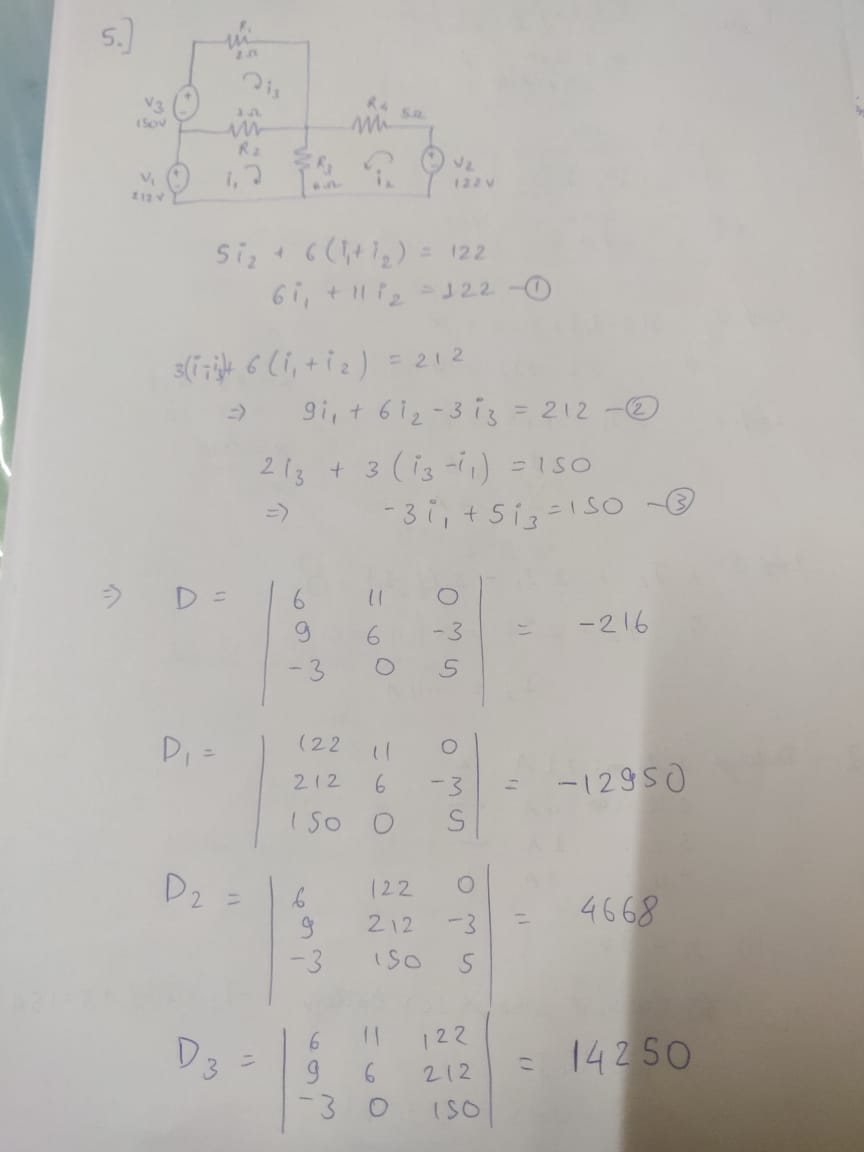 5.]
R1
2Ω
i3
V3
150V
3Ω
R2
R4
5Ω
V1
212V
i1
R3
i2
V2
122V
5i2 + 6(i1+i2) = 122
6i1 + 11i2 = 122 -①
3(i1-i3)+ 6(i1+i2) = 212
⇒ 9i1 + 6i2 - 3i3 = 212 -②
2i3 + 3(i3-i1) = 150
⇒ -3i1 + 5i3 = 150 -③
⇒ D = | 6 11 0 |
| 9 6 -3 | = -216
| -3 0 5 |
D1 = | 122 11 0 |
| 212 6 -3 | = -12950
| 150 0 5 |
D2 = | 6 122 0 |
| 9 212 -3 | = 4668
| -3 150 5 |
D3 = | 6 11 122 |
| 9 6 212 | = 14250
| -3 0 150 |